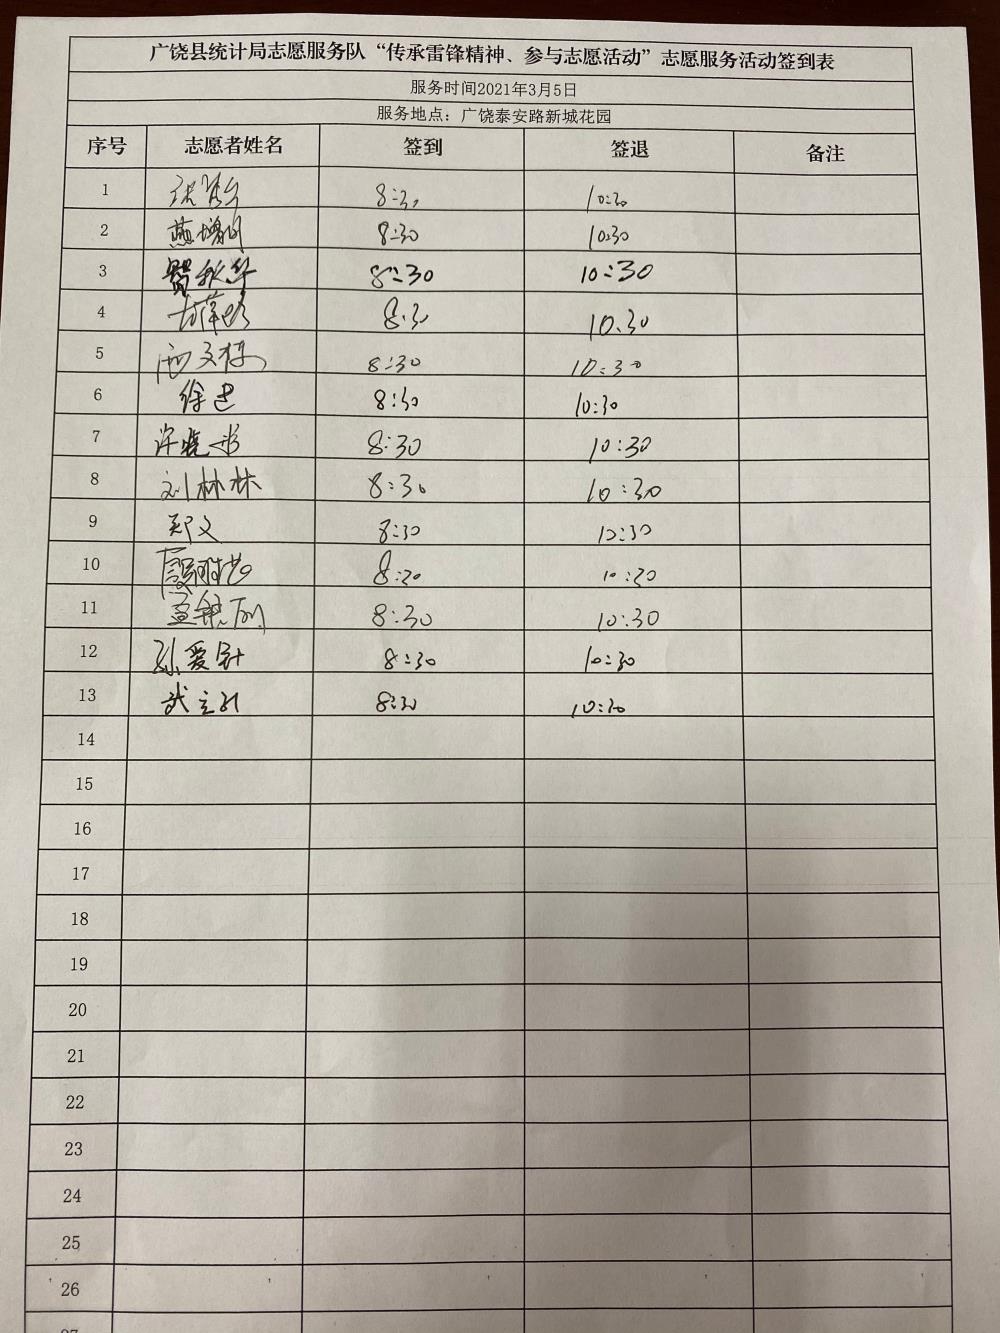 广饶县统计局志愿服务队“传承雷锋精神、参与志愿活动”志愿服务活动签到表
服务时间2021年3月5日
服务地点：广饶泰安路新城花园
序号 志愿者姓名 签到 签退 备注
1 8:30 10:30
2 8:30 10:30
3 8:30 10:30
4 8:30 10.30
5 8:30 10:30
6 徐 8:30 10:30
7 许晓 8:30 10:30
8 刘林林 8:30 10:30
9 郑文 8:30 10:30
10 8:20 10:20
11 8:30 10:30
12 孙爱 8:30 10:30
13 武立 8:30 10:30
14
15
16
17
18
19
20
21
22
23
24
25
26
27